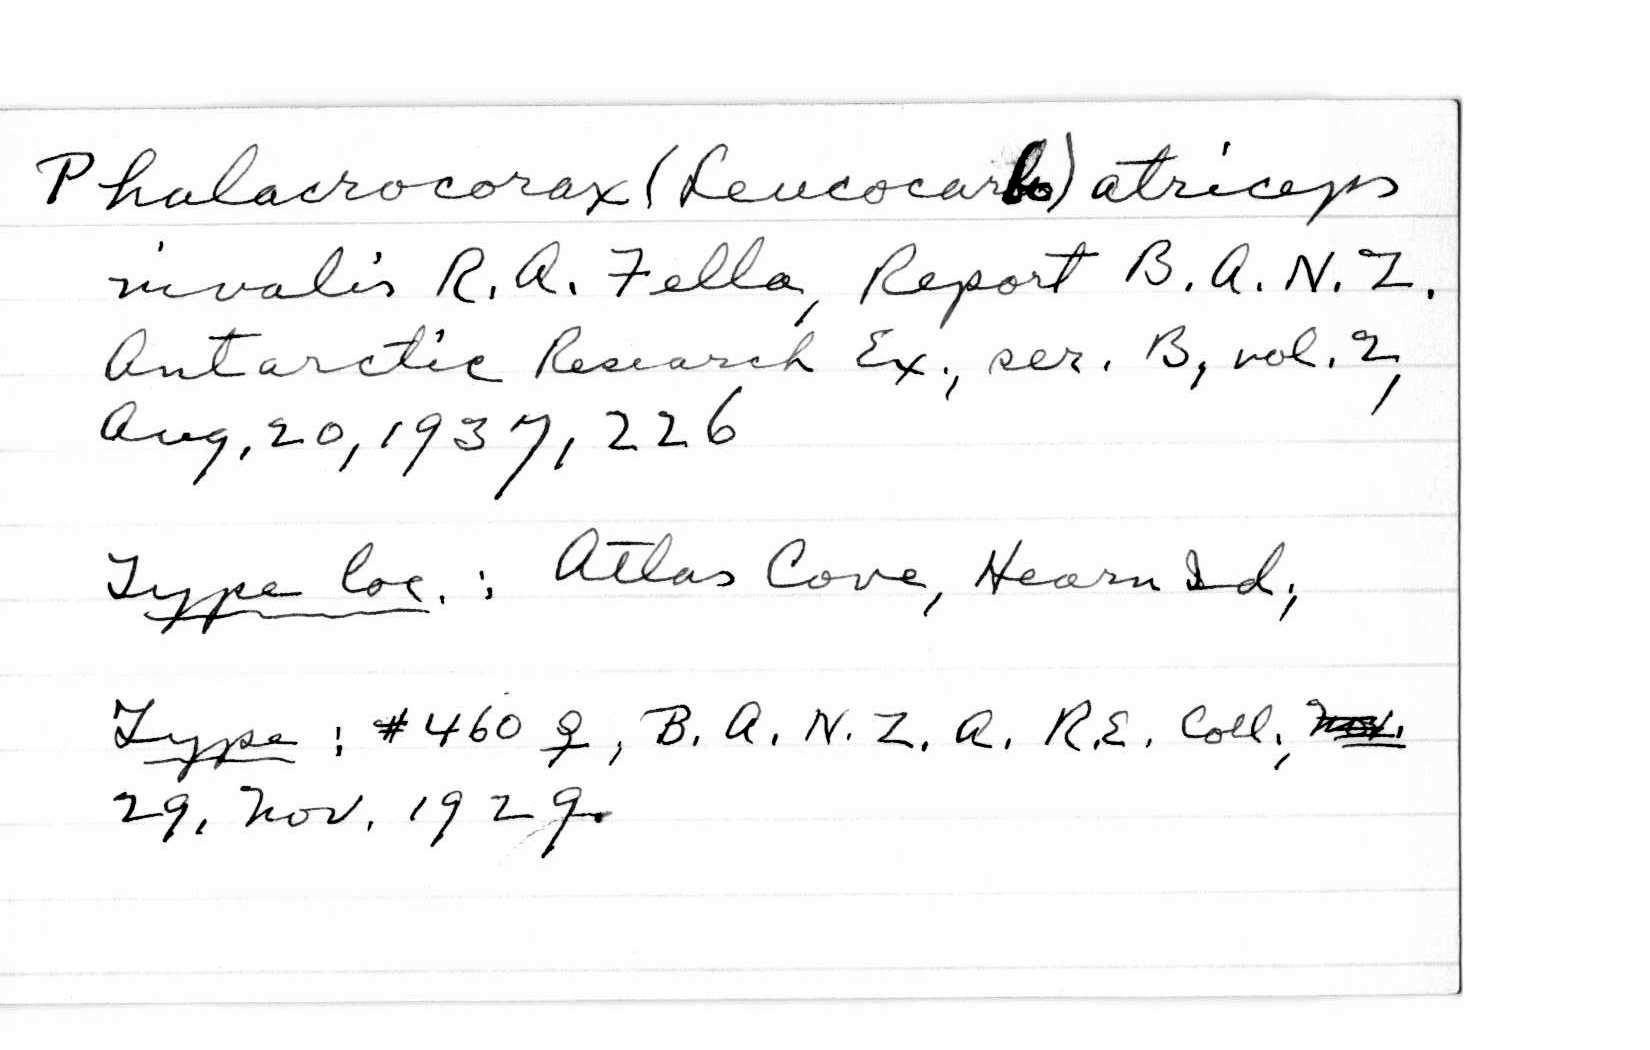 Phalacrocorax (Leucocarbo) atriceps
nivalis R. A. Falla, Report B. A. N. Z.
Antarctic Research Ex., ser. B, vol. 2,
Aug, 20, 1937, 226
Type loc. : Atlas Cove, Hearn Id,
Type : #460 ♀, B. A. N. Z. A. R.E. Coll.,
29, Nov. 1929.